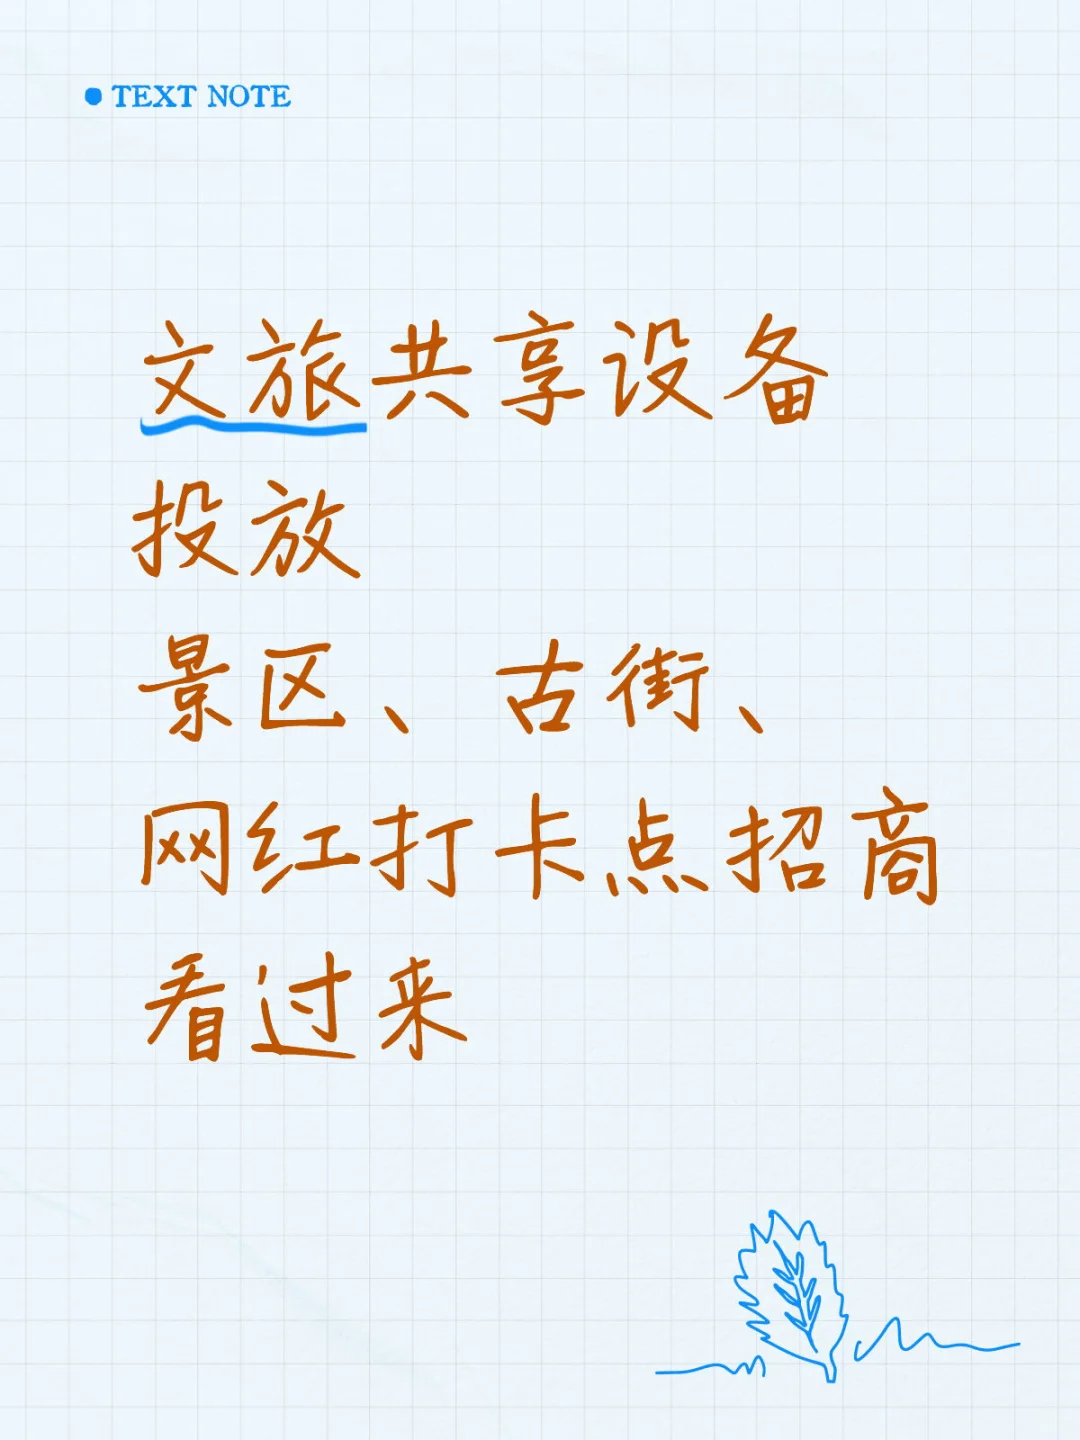 TEXT NOTE
文旅共享设备
投放
景区、古街、
网红打卡点招商
看过来